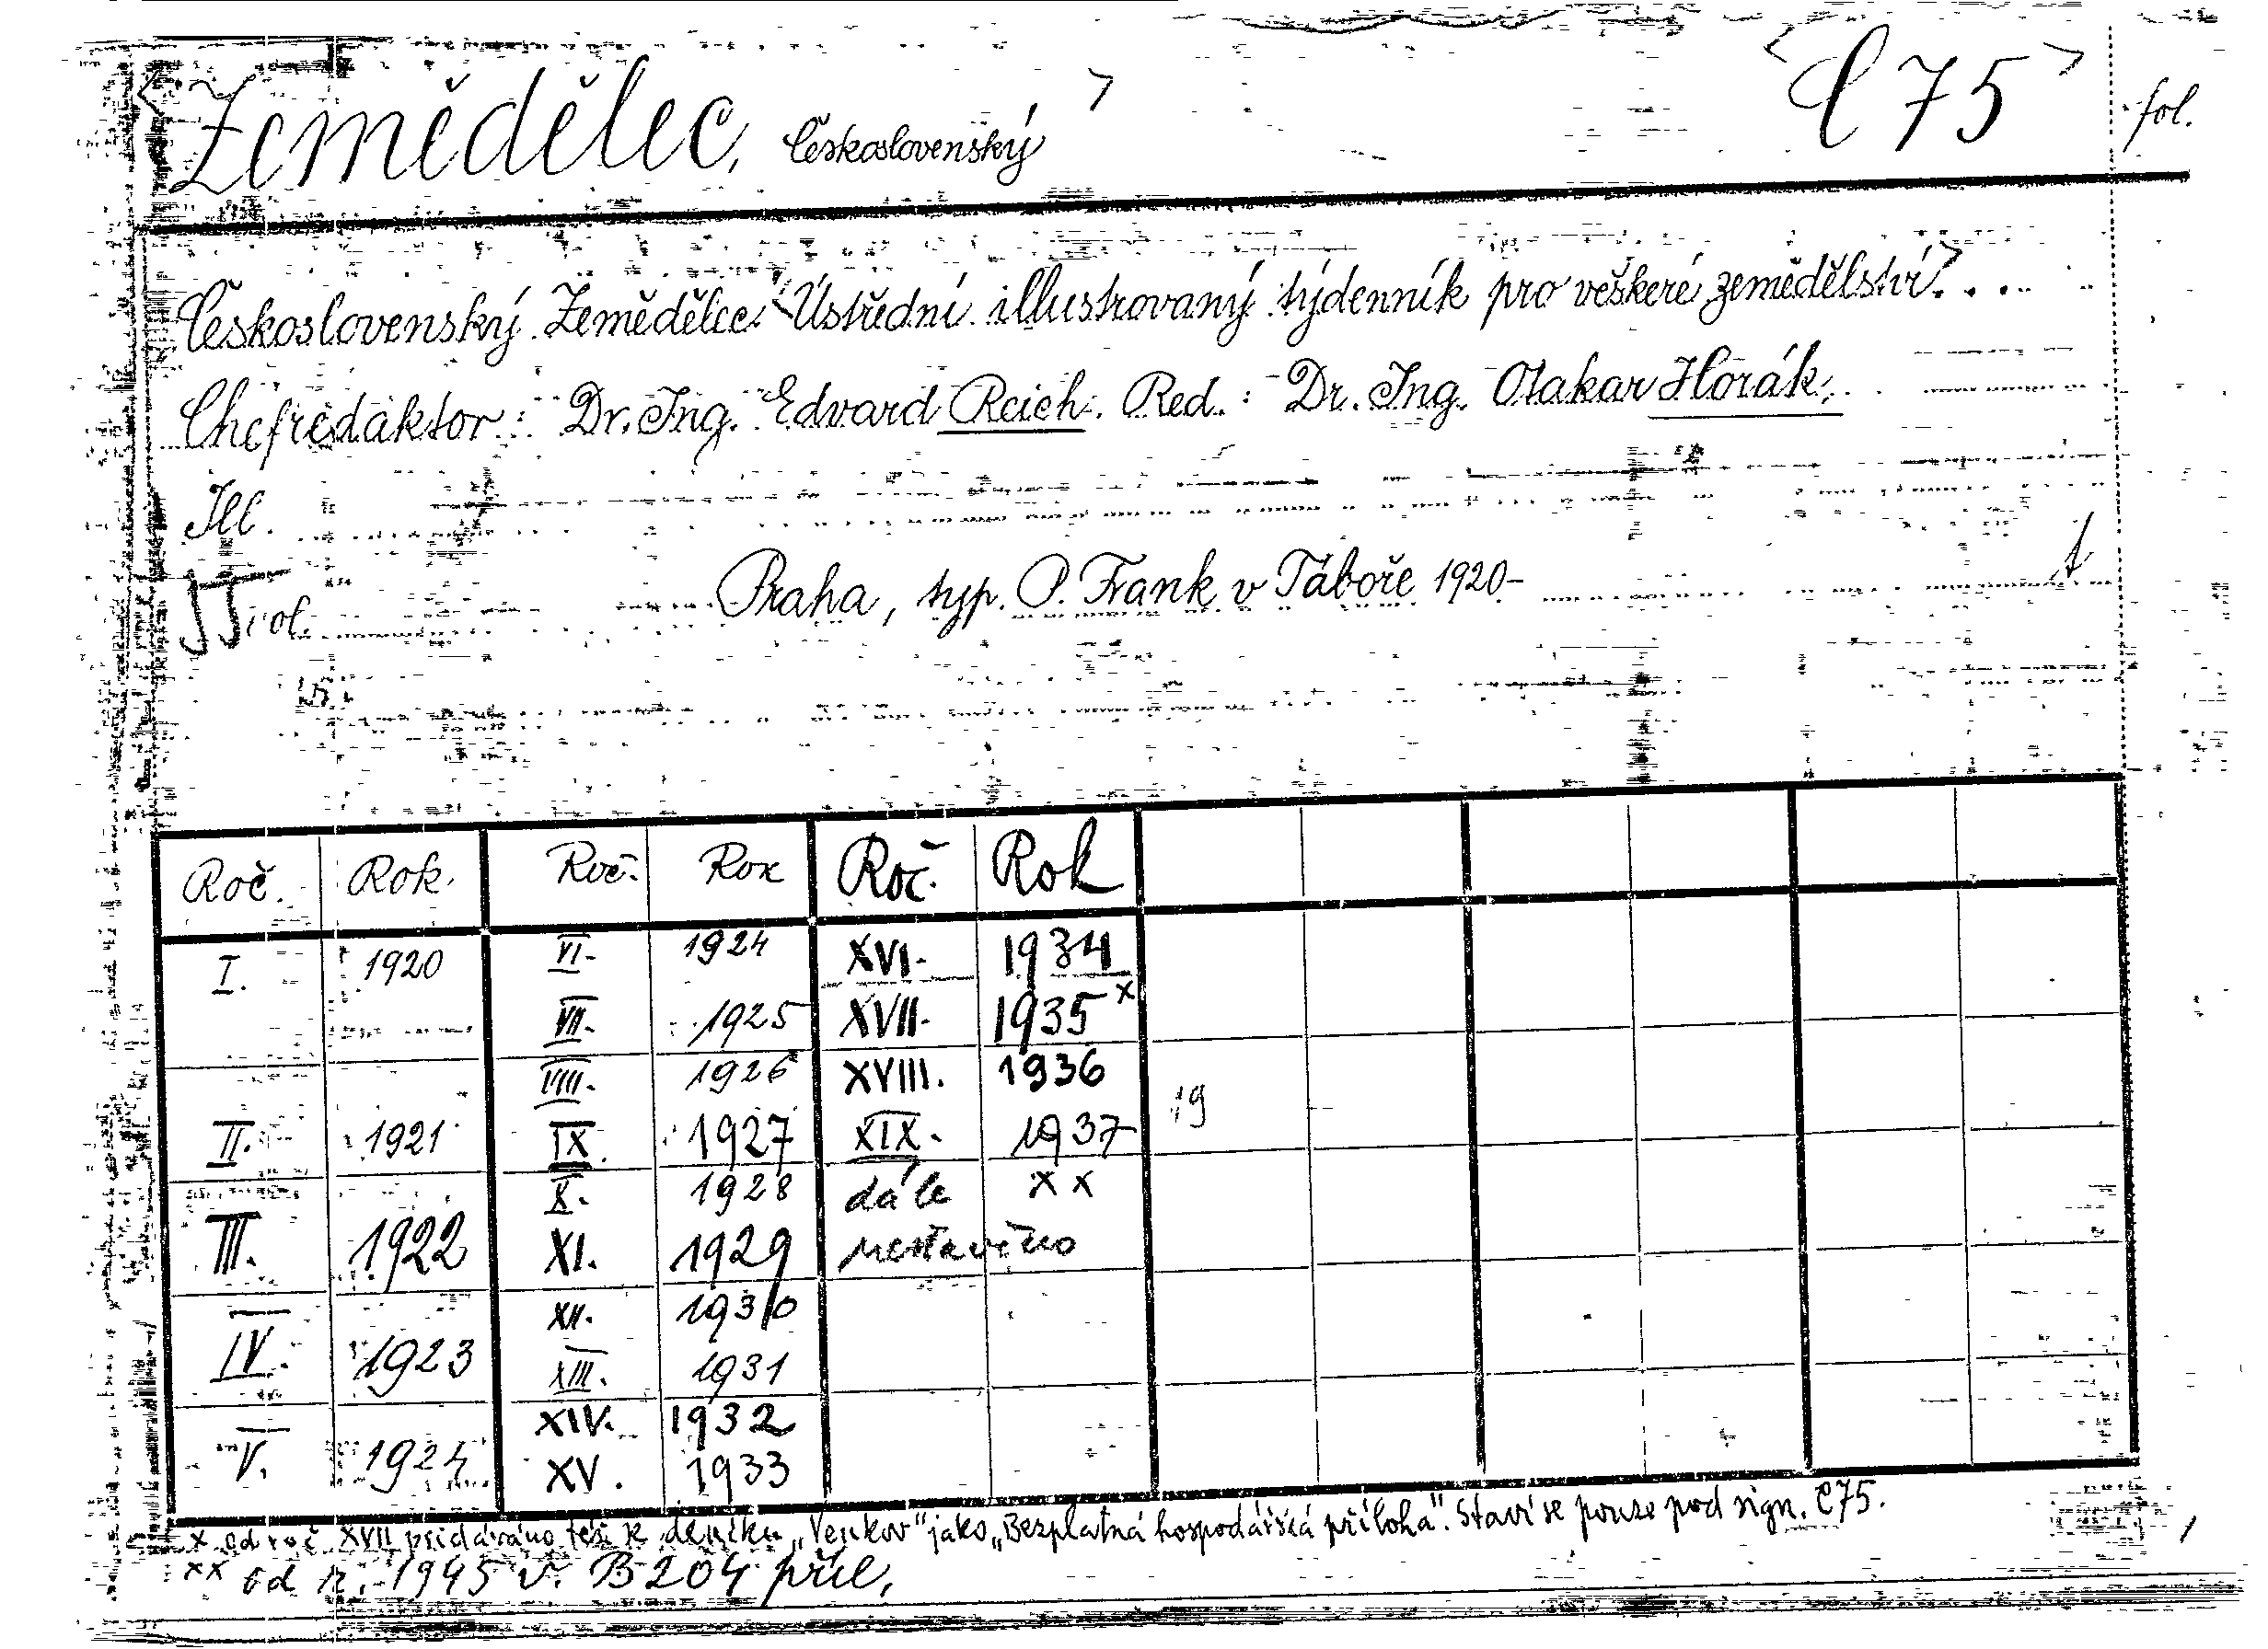 <Zemědělec, Československý> <C 75> fol.
Československý Zemědělec. <Ústřední illustrovaný týdenník pro veškeré zemědělství> ...
Chefredaktor: Dr. Ing. Edvard Reich. Red.: Dr. Ing. Otakar Horák.
Ill.
fol. Praha, typ. P. Frank v Táboře 1920-
Roč. Rok. Roč. Rok Roč. Rok
I. 1920 VI. 1924 XVI. 1934
VII. 1925 XVII. 1935 x
VIII. 1926 XVIII. 1936
19
II. 1921 IX. 1927 XIX. 1937
X. 1928 dále x x
III. 1922 XI. 1929 nestavěno
XII. 1930
IV. 1923 XIII. 1931
XIV. 1932
V. 1924 XV. 1933
x od roč. XVII přidáváno též k deníku „Venkov" jako „Bezplatná hospodářská příloha". Staví se pouze pod sign. C75.
xx od r. 1945 v. B 204 příl.